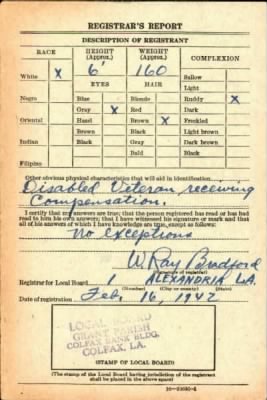 REGISTRAR'S REPORT
DESCRIPTION OF REGISTRANT
RACE HEIGHT (Approx.) WEIGHT (Approx.) COMPLEXION
White X 6' 160 Sallow
EYES HAIR Light
Negro Blue Blonde Ruddy X
Gray X Red Dark
Oriental Hazel Brown X Freckled
Brown Black Light brown
Indian Black Gray Dark brown
Bald Black
Filipino
Other obvious physical characteristics that will aid in identification
Disabled Veteran, receiving
Compensation.
I certify that my answers are true; that the person registered has read or has had
read to him his own answers; that I have witnessed his signature or mark and that
all of his answers of which I have knowledge are true, except as follows:
No exceptions
W. Ray Bradford
(Signature of registrar)
Registrar for Local Board 1 ALEXANDRIA LA.
(Number) (City or county) (State)
Date of registration Feb. 16, 1942
LOCAL BOARD
GRANT PARISH
COLFAX BANK BLDG.
COLFAX, LA.
(STAMP OF LOCAL BOARD)
(The stamp of the Local Board having jurisdiction of the registrant
shall be placed in the above space)